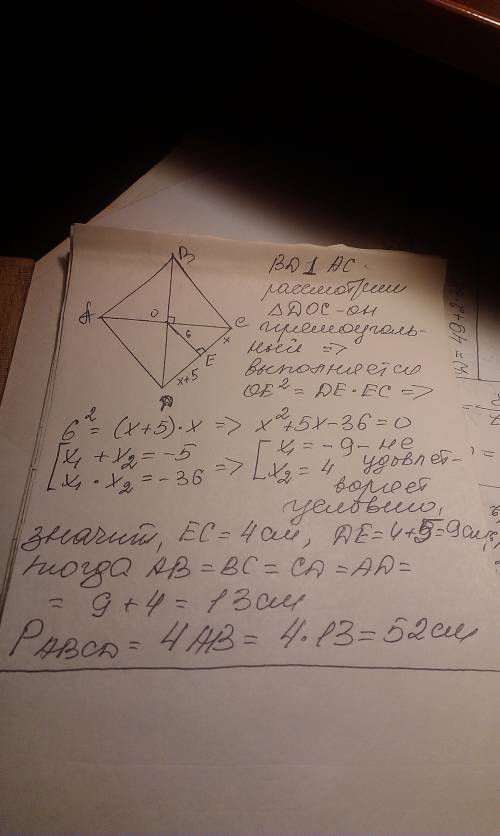 B
A
O
C
6
x
E
x+5
D
BD ⊥ AC.
рассмотрим
△DOC - он
прямоуголь-
ный =>
выполняется
OE² = DE·EC =>
6² = (x+5)·x => x²+5x-36=0
[x₁ + x₂ = -5 => [x₁ = -9 - не
x₁ · x₂ = -36 x₂ = 4 удовлет-
воряет
условию,
значит, EC = 4см, DE = 4+5=9см,
тогда AB = BC = CD = AD =
= 9 + 4 = 13 см
P ABCD = 4AB = 4·13 = 52 см